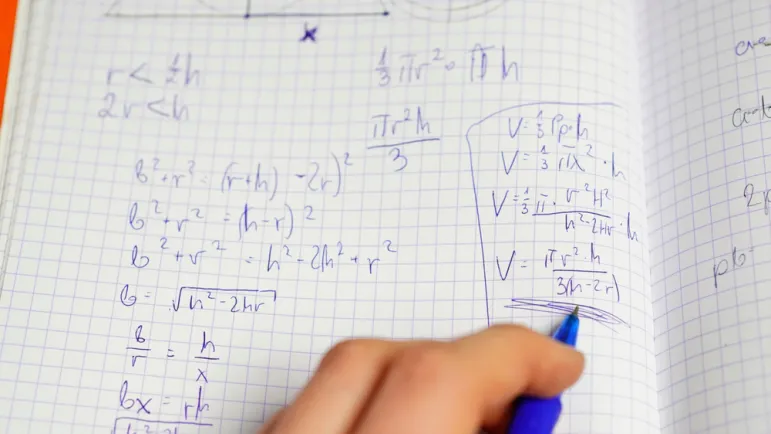 x
r < 1/2 h
2r < h
1/3 πr² · π h
πr²h/3
b² + r² = (r+h) - 2r)²
b² + r² = (h-r)²
b² + r² = h² - 2h² + r²
b = √(h² - 2hr)
b/r = h/x
bx = rh
V = 1/3 Pp · h
V = 1/3 πx² · h
V = 1/3 π · r²H²/(h² - 2Hr) · h
V = πr² · h/3(h - 2r)